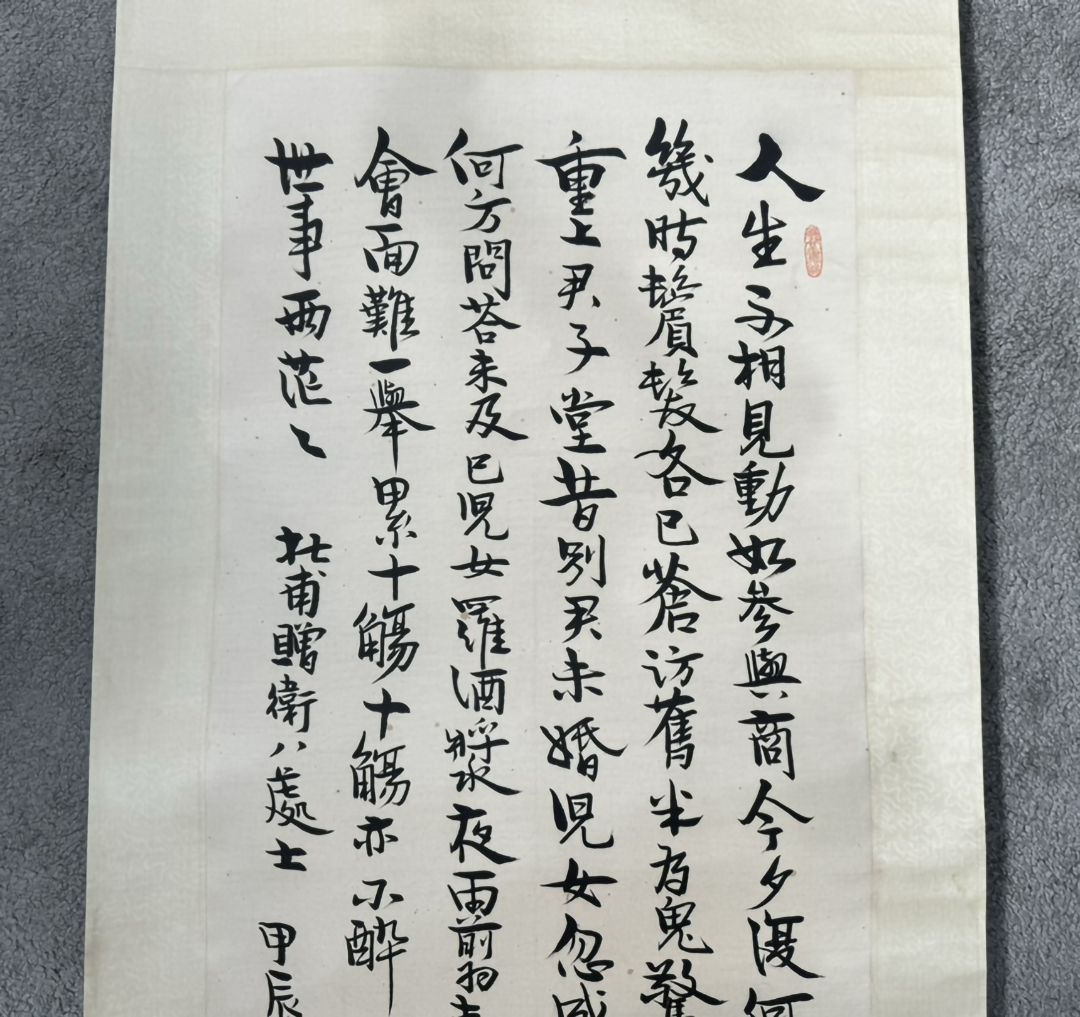 人生不相見動如參與商今夕復何
幾時鬢髮各已蒼訪舊半為鬼驚
重上君子堂昔別君未婚児女忽成
何方問荅未及已児女羅酒漿夜雨剪
會面難一舉累十觴十觴亦不醉
世事两茫〻
杜甫贈衛八處士
甲辰